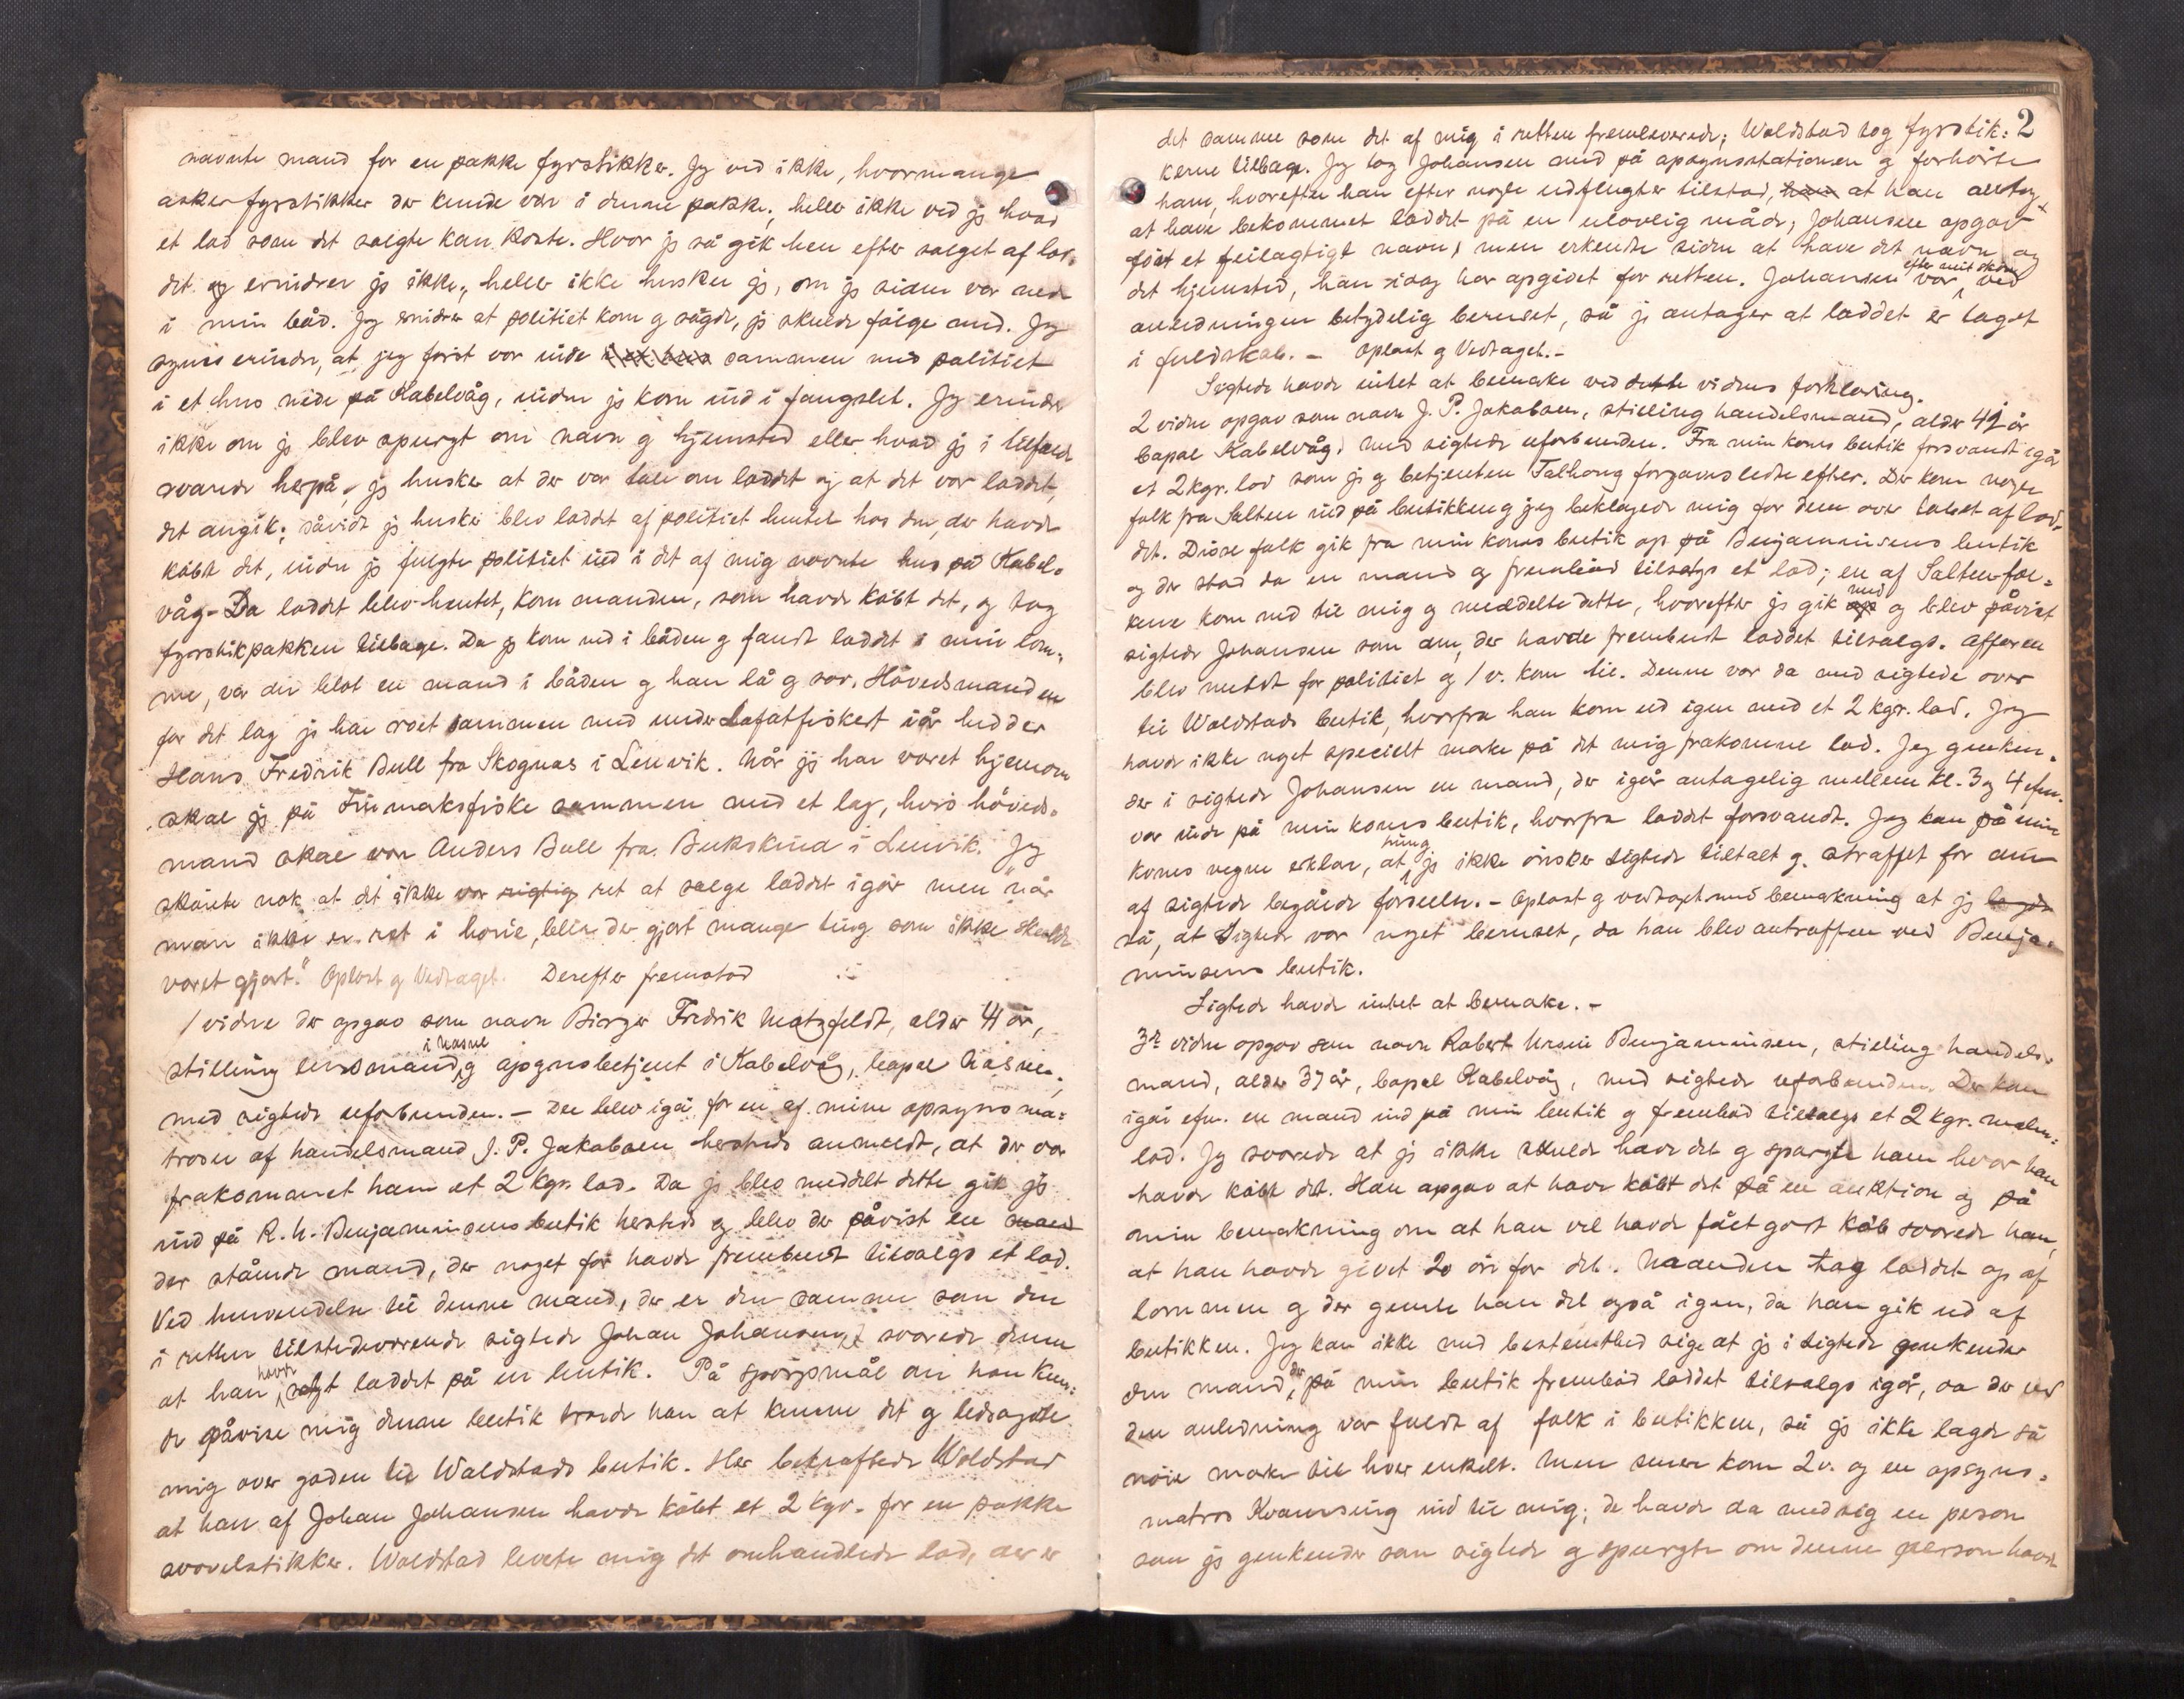 navnte mand for en pakke fyrstikker. Jg ved ikke, hvormange
æsker fyrstikker der kunde være i denne pakke; heller ikke ved jg hvad
et lod som det solgte kan koste. Hvor jg så gik hen efter salget af lod-
det erindrer jg ikke, heller ikke husker jg, om jg siden var nede
i min båd. Jg erindrer at politiet kom g sagde, jg skulde følge med. Jg
synes erindre, at jeg først var inde i et hus sammen med politiet
i et hus nede på Kabelvåg, inden jg kom ind i fængslet. Jg erindrer
ikke om jg blev spurgt om navn g hjemsted eller hvad jg i tilfælde
svarede herpå, jg husker at der var tale om loddet og at det var loddet,
det angik; såvidt jg husker blev loddet af politiet hentet hos den, der havde
købt det, inden jg fulgte politiet ind i det af mig nævnte hus på Kabel-
våg. Da loddet blev hentet, kom manden, som havde købt det, og tog
fyrstikpakken tilbage. Da jg kom ned i båden g fandt loddet i min lom-
me, var der blot en mand i båden g han lå g sov. Høvedsmanden
for det lag jg har roet sammen med under Lofotfisket iår hedder
Hans Fredrik Bull fra Skognæs i Lenvik. Når jg har været hjemom
skal jg på Finmarksfiske sammen med et lag, hvis høveds-
mand skal være Anders Bull fra Bukskind i Lenvik. Jg
skjønte nok at det ikke var rigtig ret at sælge loddet igår men "når
man ikke er ret i hovie, bliver der gjort mange ting som ikke skulde
været gjort." Oplæst g Vedtaget. Derefter fremstod
1 vidne der opgav som navn Birger Fredrik Motzfeldt, alder 41 år,
stilling lensmand i Hasvik g opsynsbetjent i Kabelvåg, bopæl Hasvik,
med sigtede uforbunden. – Der blev igår for en af mine opsynsma-
troser af handelsmand J. P. Jakobsen hersteds anmeldt, at der var
frakommet ham et 2 kgr. lod. Da jg blev meddelt dette gik jg
ind på R. U. Benjaminsens butik hersteds g blev der påvist en mand
der stående mand, der noget før havde frembudt tilsalgs et lod.
Ved henvendelse til denne mand, der er den samme som den
i retten tilstedeværende sigtede Johan Johansen, svarede denne
at han havde solgt loddet på en butik. På spørgsmål om han kun-
de påvise mig denne butik troede han at kunne det g ledsagede
mig over gaden til Woldstads butik. Her bekræftede Woldstad
at han af Johan Johansen havde købt et 2 kgr. for en pakke
svovelstikker. Woldstad leverte mig det omhandlede lod, der er
2
det samme som det af mig i retten fremleverede; Woldstad tog fyrstik-
kerne tilbage. Jg tog Johansen med på opsynsstationen g forhørte
ham, hvorefter han efter nogle udflugter tilstod, han at han
at have bekommet loddet på en ulovlig måde; Johansen opgav
først et feilagtigt navn, men erkendte siden at have det navn og
det hjemsted, han idag har opgivet for retten. Johansen var efter mit skøn ved
anledningen betydelig beruset, så jg antager at loddet er taget
i fuldskab. – Oplæst g Vedtaget. –
Sigtede havde intet at bemærke ved dette vidnes forklaring.
2 vidne opgav som navn J. P. Jakobsen, stilling handelsmand, alder 41 år
bopæl Kabelvåg, med sigtede uforbunden. Fra min kones butik forsvandt igår
et 2 kgr. lod som jg g betjenten forgæves ledte efter. Der kom nogle
folk fra Salten ind på butikken g jeg beklagede mig for dem over tabet af lod-
det. Disse folk gik fra min kones butik op på Benjaminsens butik
og der stod da en mand og frembød tilsalgs et lod; en af Salten-fol-
kene kom ned til mig g meddelte dette, hvorefter jg gik op med og blev påvist
sigtede Johansen som den, der havde frembudt loddet tilsalgs. Affæren
blev meldt for politiet og 1 v. kom til. Denne var da med sigtede over
til Woldstads butik, hvorfra han kom ud igen med et 2 kgr. lod. Jeg
havde ikke noget specielt mærke på det mig frakomne lod. Jeg genken-
der i sigtede Johansen en mand, der igår antagelig mellem kl. 3 og 4 efm.
var inde på min kones butik, hvorfra loddet forsvandt. Jeg kan på min
kones vegne erklære, at hung jg ikke ønsker Sigtede tiltalt g. straffet for den
af sigtede begåede forseelse. – Oplæst g vedtaget med bemærkning at jg
så, at Sigtede var noget beruset, da han blev antruffen ved Benja-
minsens butik.
Sigtede havde intet at bemærke. –
3de vidne opgav som navn Robert Ursin Benjaminsen, stilling handels-
mand, alder 37 år, bopæl Kabelvåg, med sigtede uforbunden. Der kom
igår efm. en mand ind på min butik g frembød tilsalgs et 2 kgr. malm-
lod. Jg svarede at jg ikke skulde have det g spurgte ham hvor han
havde købt det. Han opgav at have købt det på en auktion og på
min bemærkning om at han vel havde fået godt køb svarede han,
at han havde givet 20 øre for det. Manden tog loddet op af
lommen g der gemte han det også igen, da han gik ud af
butikken. Jeg kan ikke med bestemthed sige at jg i Sigtede genkender
den mand, der på min butik frembød loddet tilsalgs igår, da der ved
den anledning var fuldt af folk i butikken, så jg ikke lagde så
nøie mærke til hver enkelt. Men senere kom 2 v. og en opsyns-
matros ind til mig; de havde da med sig en person
som jg genkender som sigtede g spurgte om denne person havde